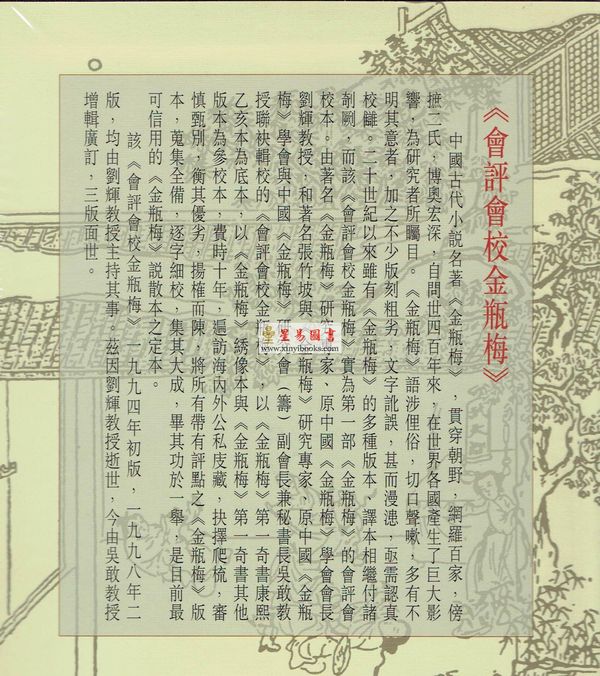 《會評會校金瓶梅》
中國古代小説名著《金瓶梅》，貫穿朝野，網羅百家，傍
摭二氏，博奥宏深，自問世四百年來，在世界各國產生了巨大影
響，為研究者所矚目。《金瓶梅》語涉俚俗，切口聲嗽，多有不
明其意者，加之不少版刻粗劣，文字訛誤，甚而漫漶，亟需認真
校讎。二十世紀以來雖有《金瓶梅》的多種版本、譯本相繼付諸
剞劂，而該《會評會校金瓶梅》實為第一部《金瓶梅》的會評會
校本。由著名《金瓶梅》研究家、原中國《金瓶梅》學會會長
劉輝教授，和著名張竹坡與《金瓶梅》研究專家、原中國《金瓶
梅》學會與中國《金瓶梅》研究會（籌）副會長兼秘書長吳敢教
授聯袂輯校的《會評會校金瓶梅》，以《金瓶梅》第一奇書康熙
乙亥本為底本，以《金瓶梅》綉像本與《金瓶梅》第一奇書其他
版本為參校本，費時十年，遍訪海內外公私庋藏，抉擇爬梳，審
慎甄別，衡其優劣，揚榷而陳，將所有帶有評點之《金瓶梅》版
本，蒐集全備，逐字細校，集其大成，畢其功於一舉，是目前最
可信用的《金瓶梅》説散本之定本。
該《會評會校金瓶梅》一九九四年初版，一九九八年二
版，均由劉輝教授主持其事。茲因劉輝教授逝世，今由吳敢教授
增輯廣訂，三版面世。
星易圖書
www.xinyibooks.com